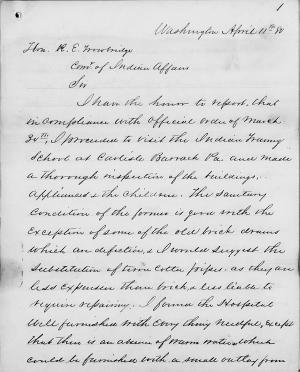 1
Washington April 11th 80
Hon. R. E. Trowbridge
Com. of Indian Affairs
Sir
I have the honor to report, that
in compliance with official order of March
30th, I proceeded to visit the Indian Training
School at Carlisle Barrack Pa. and made
a thorough inspection of the buildings,
Appliances & the Children. The Sanitary
Condition of the former is good with the
Exception of some of the old brick drains
which are defective, & I would suggest the
Substitution of terra cotta pipes. as they are
less expensive than brick, & less liable to
require repairing. I found the Hospital
well furnished with every thing needful, except
that there is an absence of warm water, which
could be furnished with a small outlay from